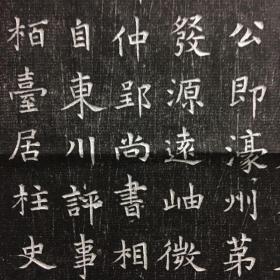 公即濠州苐
發源逺岫微
仲郢尚書相
自東川評事
栢臺居柱史